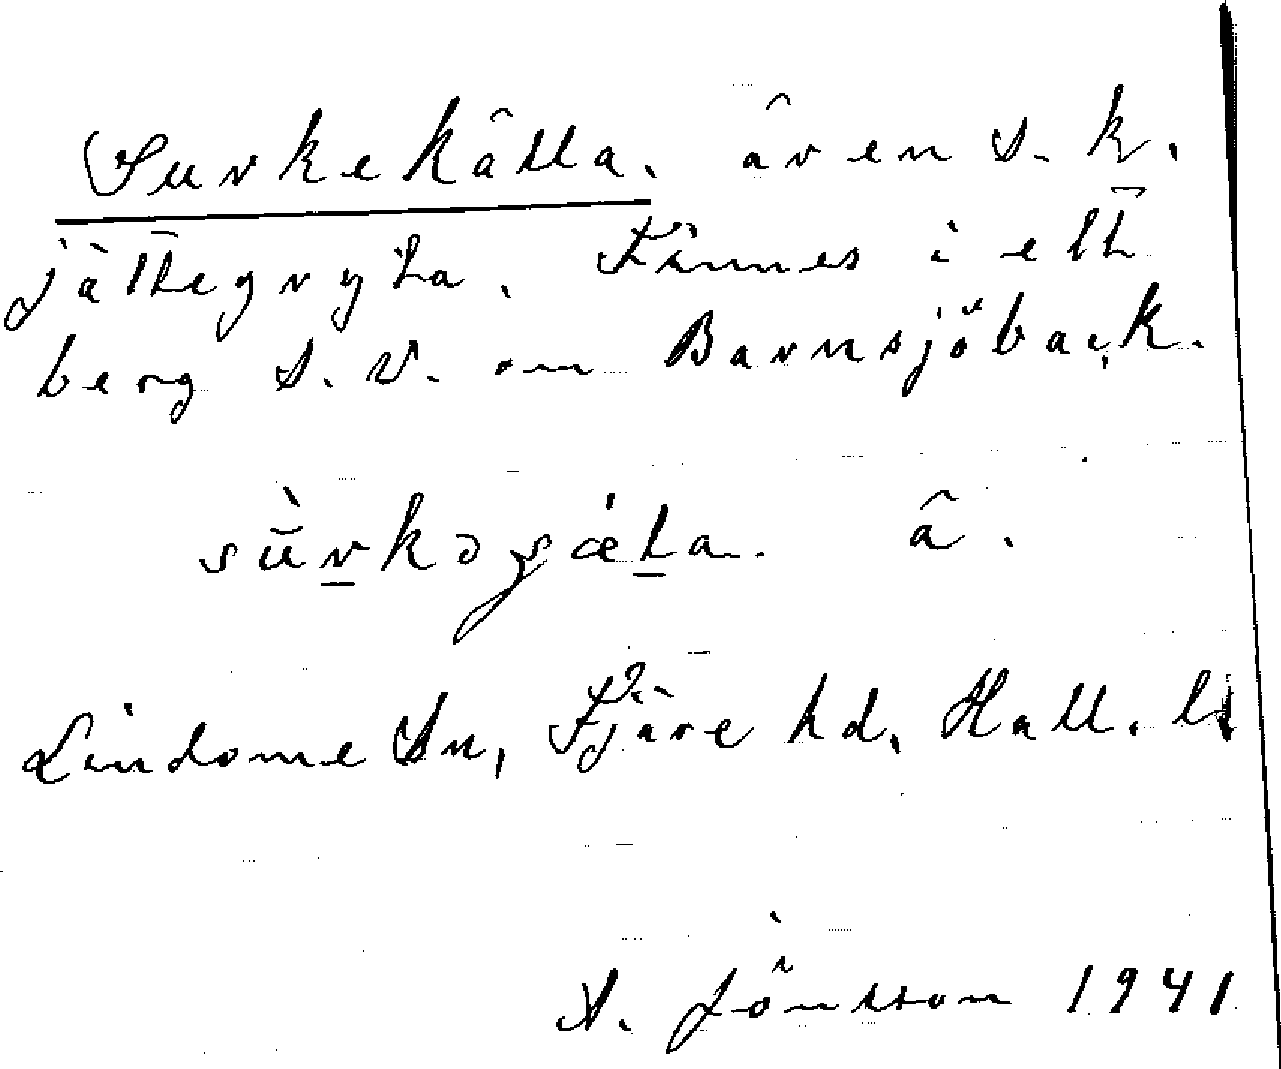 Surkekälla. även s. k.
jättegryta. Finnes i ett
berg S. V. om Barnsjöbäck.
sùrkəʂæ̀ta. ä.
Lindome Sn, Fjäre hd, Hall. l.
A. Jönsson 1941